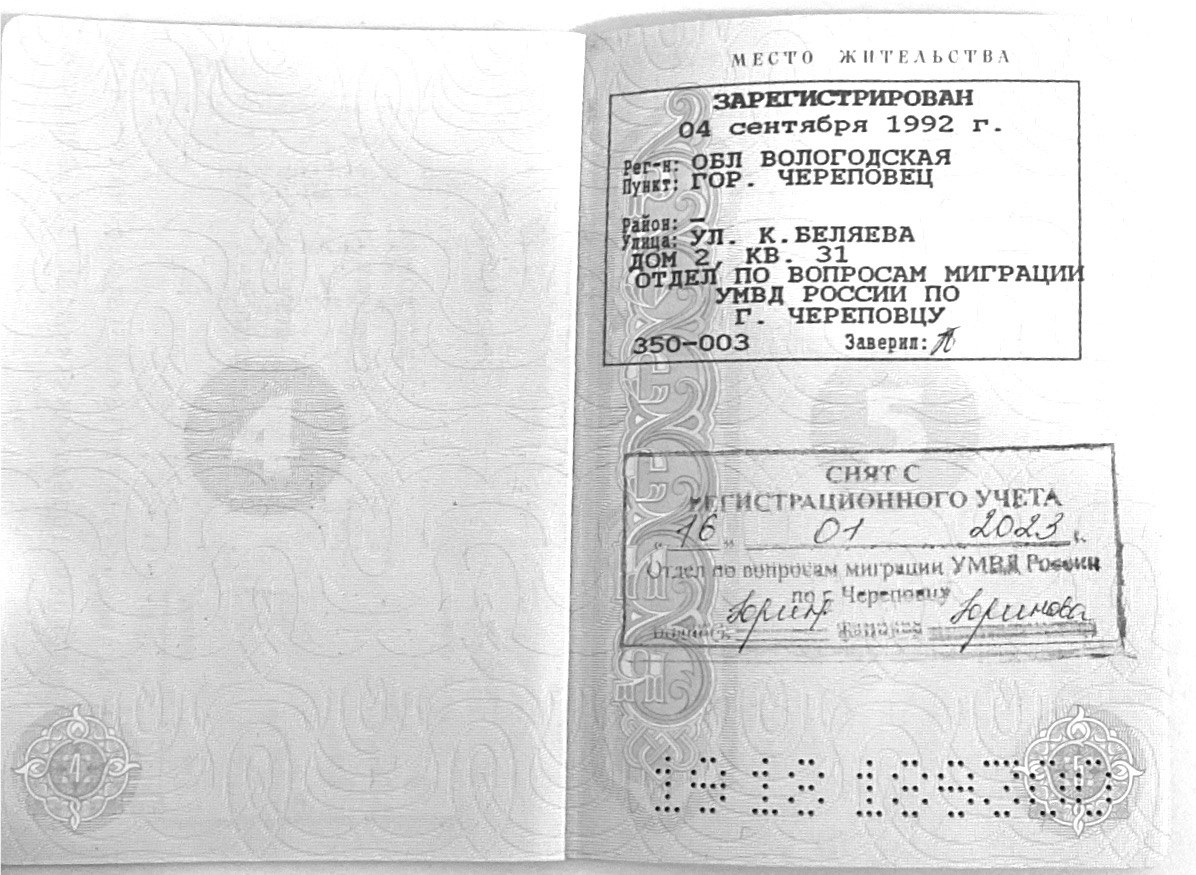 МЕСТО ЖИТЕЛЬСТВА
ЗАРЕГИСТРИРОВАН
04 сентября 1992 г.
Рег-н: ОБЛ ВОЛОГОДСКАЯ
Пункт: ГОР. ЧЕРЕПОВЕЦ
Район: –
Улица: УЛ. К.БЕЛЯЕВА
ДОМ 2, КВ. 31
ОТДЕЛ ПО ВОПРОСАМ МИГРАЦИИ
УМВД РОССИИ ПО
Г. ЧЕРЕПОВЦУ
350-003 Заверил:
4
5
СНЯТ С
РЕГИСТРАЦИОННОГО УЧЕТА
" 16 " 01 2023 г.
Отдел по вопросам миграции УМВД России
по г. Череповцу
Юринова
4
5
19 18 189300